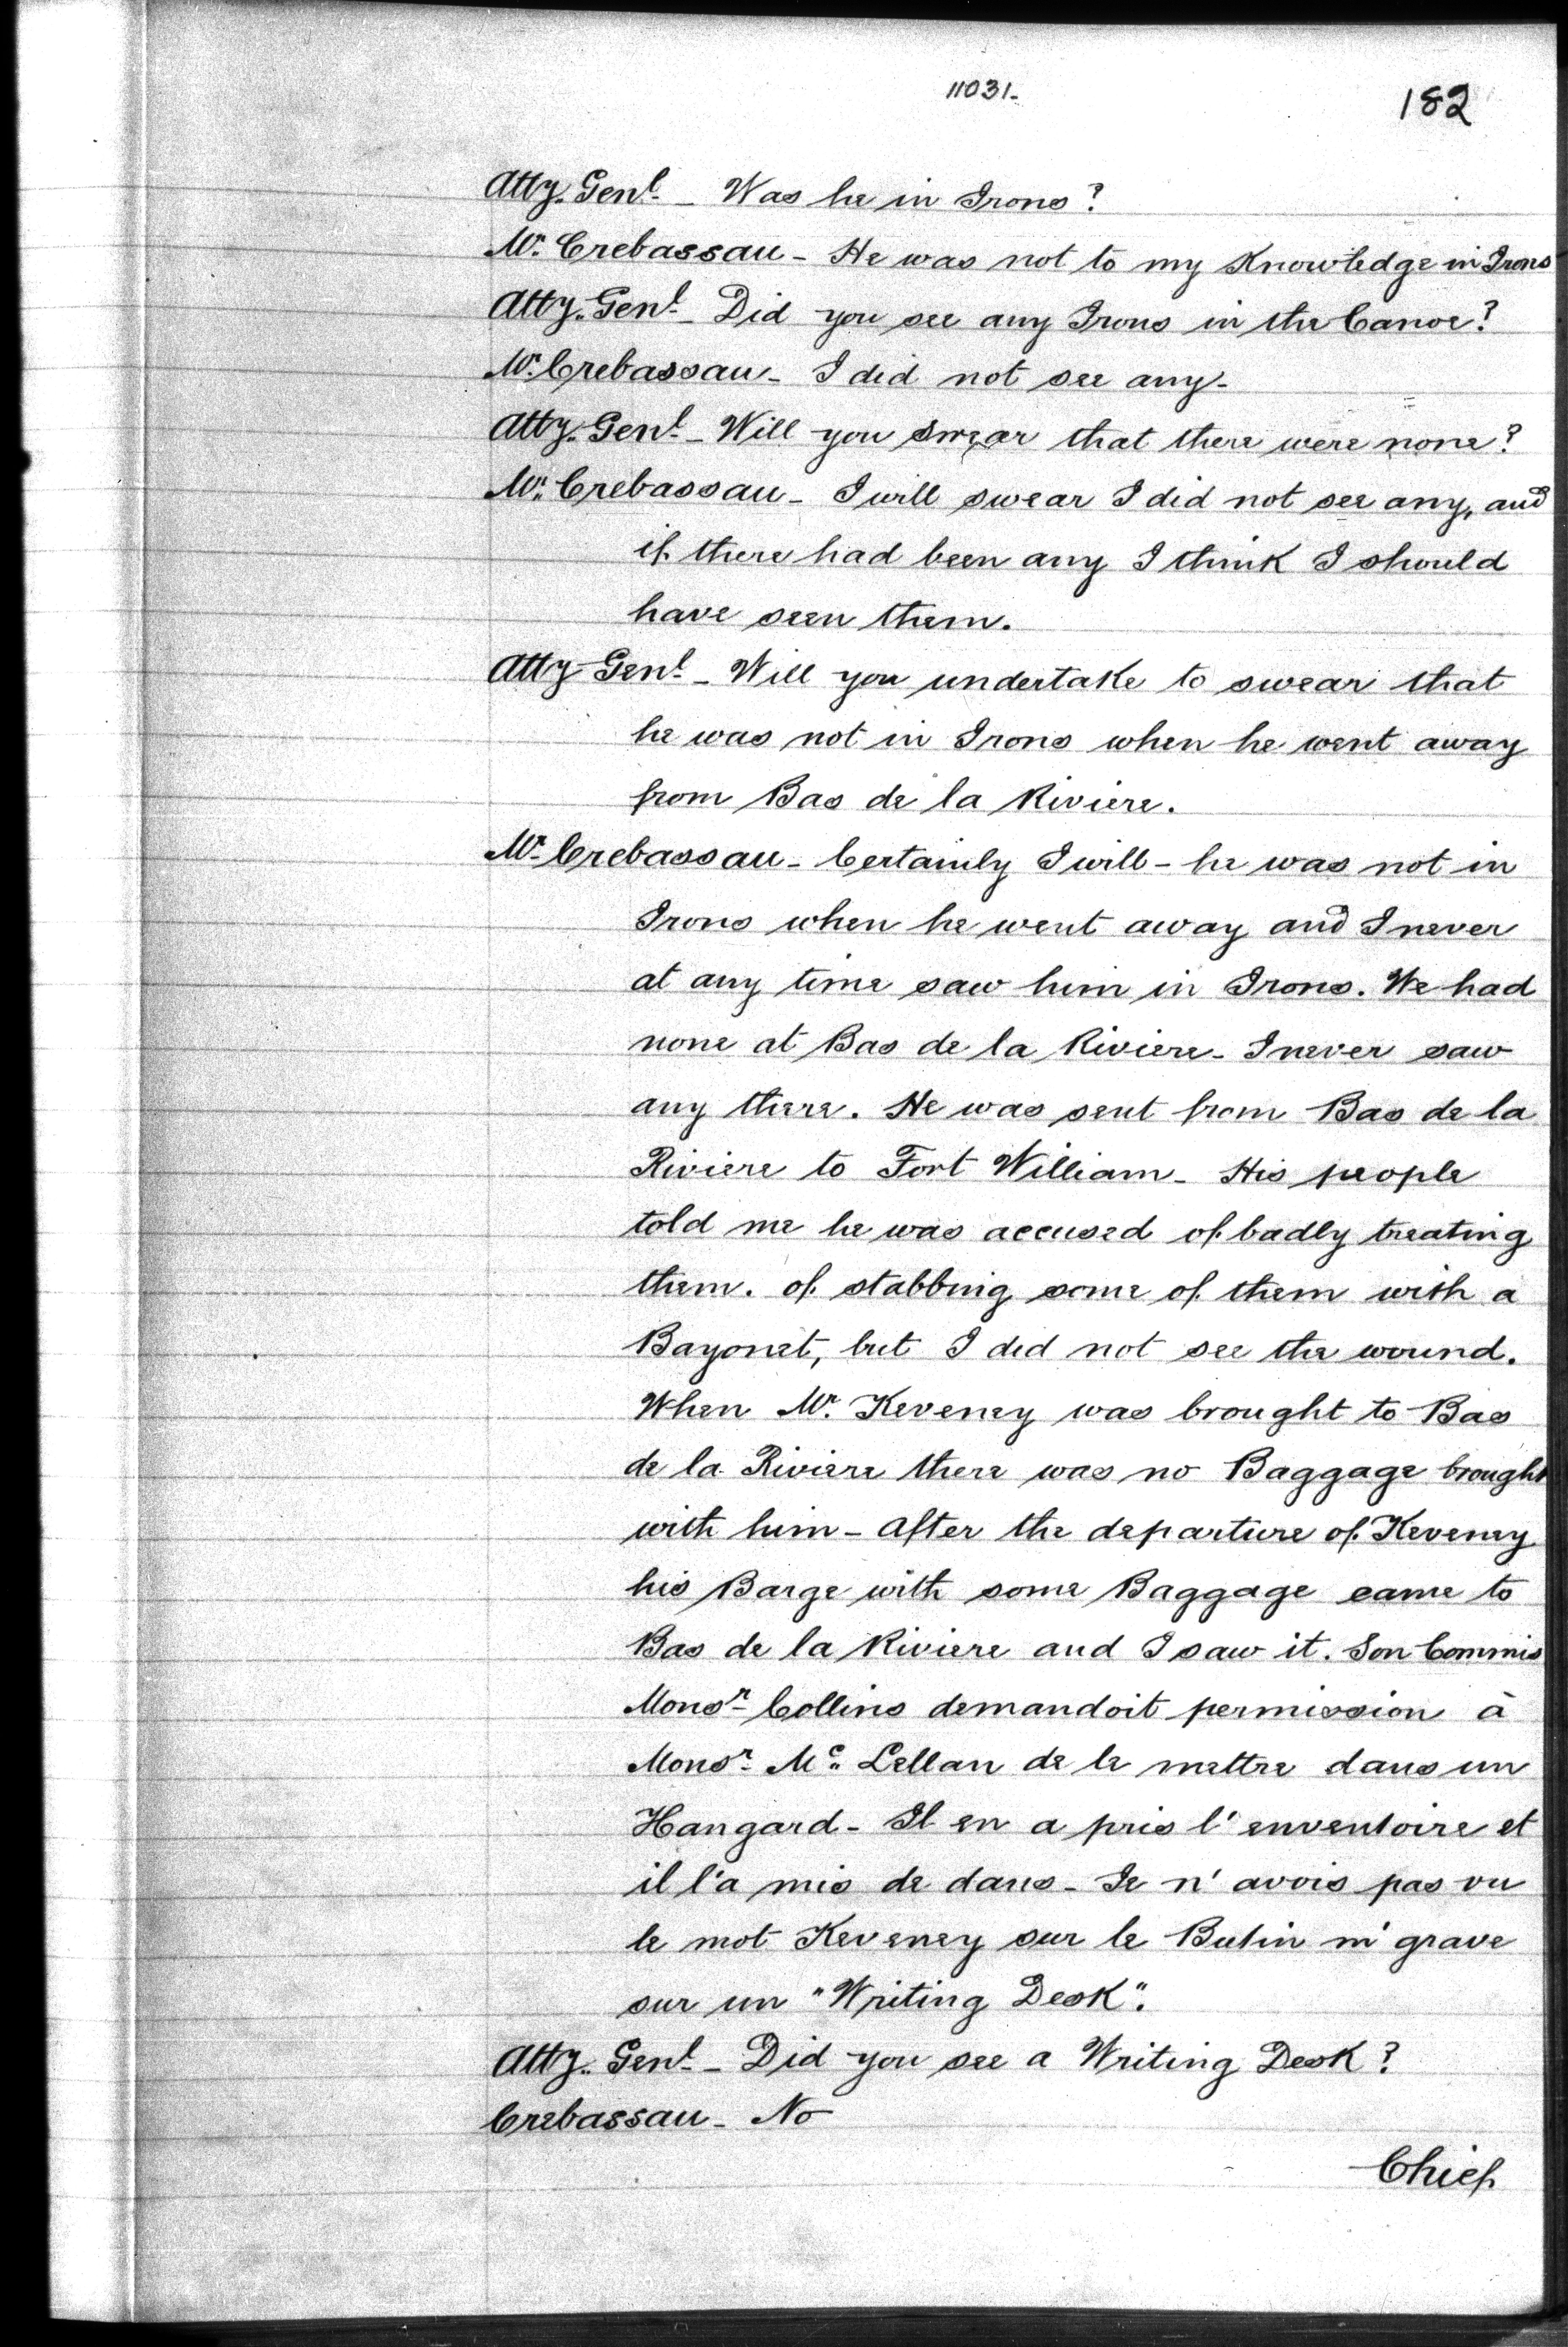 11031-
182
Atty. Genl. - Was he in Irons?
Mr. Crebassau - He was not to my Knowledge in Irons
Atty. Genl. - Did you see any Irons in the Canoe?
Mr. Crebassau - I did not see any -
Atty. Genl. - Will you swear that there were none?
Mr. Crebassau - I will swear I did not see any, and
if there had been any I think I should
have seen them.
Atty Genl. - Will you undertake to swear that
he was not in Irons when he went away
from Bas de la Riviere.
Mr. Crebassau - Certainly I will - he was not in
Irons when he went away and I never
at any time saw him in Irons. We had
none at Bas de la Riviere - I never saw
any there. He was sent from Bas de la
Riviere to Fort William - His people
told me he was accused of badly treating
them. of stabbing some of them with a
Bayonet, but I did not see the wound.
When Mr. Keveney was brought to Bas
de la Riviere there was no Baggage brought
with him - after the departure of Keveney
his Barge with some Baggage came to
Bas de la Riviere and I saw it. Son Commis
Monsr. Collins demandoit permission à
Monsr. Mc. Lellan de le mettre dans un
Hangard - Il en a pris l'enventoire et
il l'a mis de dans - Je n'avois pas vu
le mot Keveney sur le Butin ni grave
sur un "Writing Desk".
Atty. Genl. - Did you see a Writing Desk?
Crebassau - No
Chief